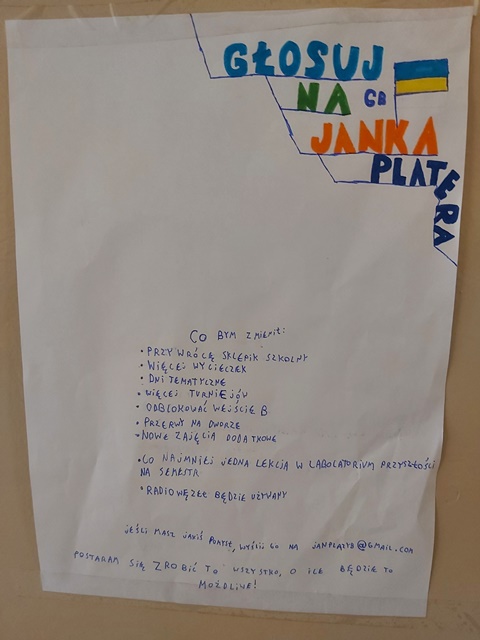 GŁOSUJ
NA 6B
JANKA
PLATERA
CO BYM ZMIENIŁ:
• PRZYWRÓCĘ SKLEPIK SZKOLNY
• WIĘCEJ WYCIECZEK
• DNI TEMATYCZNE
• WIĘCEJ TURNIEJÓW
• ODBLOKOWAĆ WEJŚCIE B
• PRZERWY NA DWORZE
• NOWE ZAJĘCIA DODATKOWE
• CO NAJMNIEJ JEDNA LEKCJA W LABOLATORIUM PRZYSZŁOŚCI
NA SEMESTR
• RADIOWĘZEŁ BĘDZIE UŻYWANY
JEŚLI MASZ JAKIŚ POMYSŁ, WYŚLIJ GO NA JANPLATYB@GMAIL.COM
POSTARAM SIĘ ZROBIĆ TO WSZYSTKO, O ILE BĘDZIE TO
MOŻLIWE!